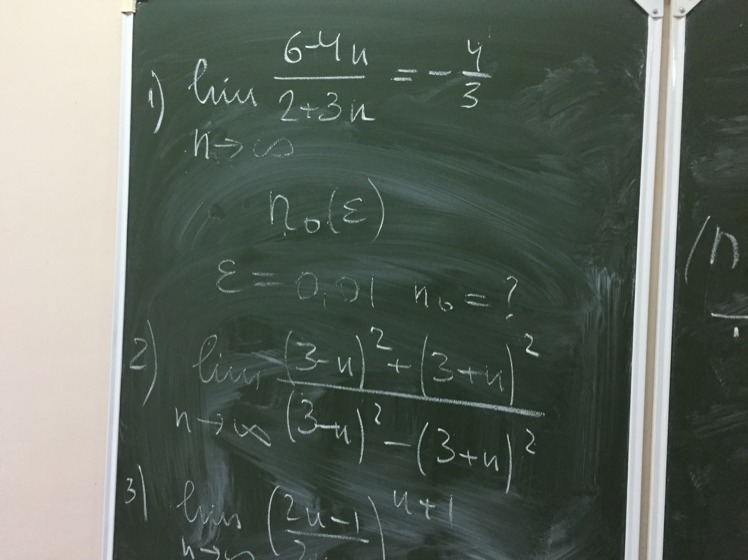 1) lim (6-4n)/(2+3n) = -4/3
n→∞
n₀(ε)
ε = 0,01 n₀ = ?
2) lim ((3-n)²+(3+n)²)/((3-n)²-(3+n)²)
n→∞
3) lim (2n-1)ⁿ⁺¹
n→∞
(n